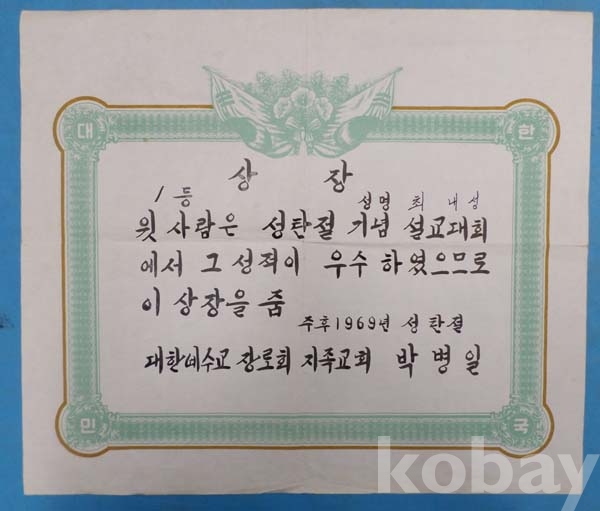 대 한
상 장
1 등
성명 최 내성
윗 사람은 성탄절 기념 설교대회
에서 그 성적이 우수 하였으므로
이 상장을 줌
주후1969년 성탄절
대한예수교 장로회 지족교회 박병일
민 국
kobay